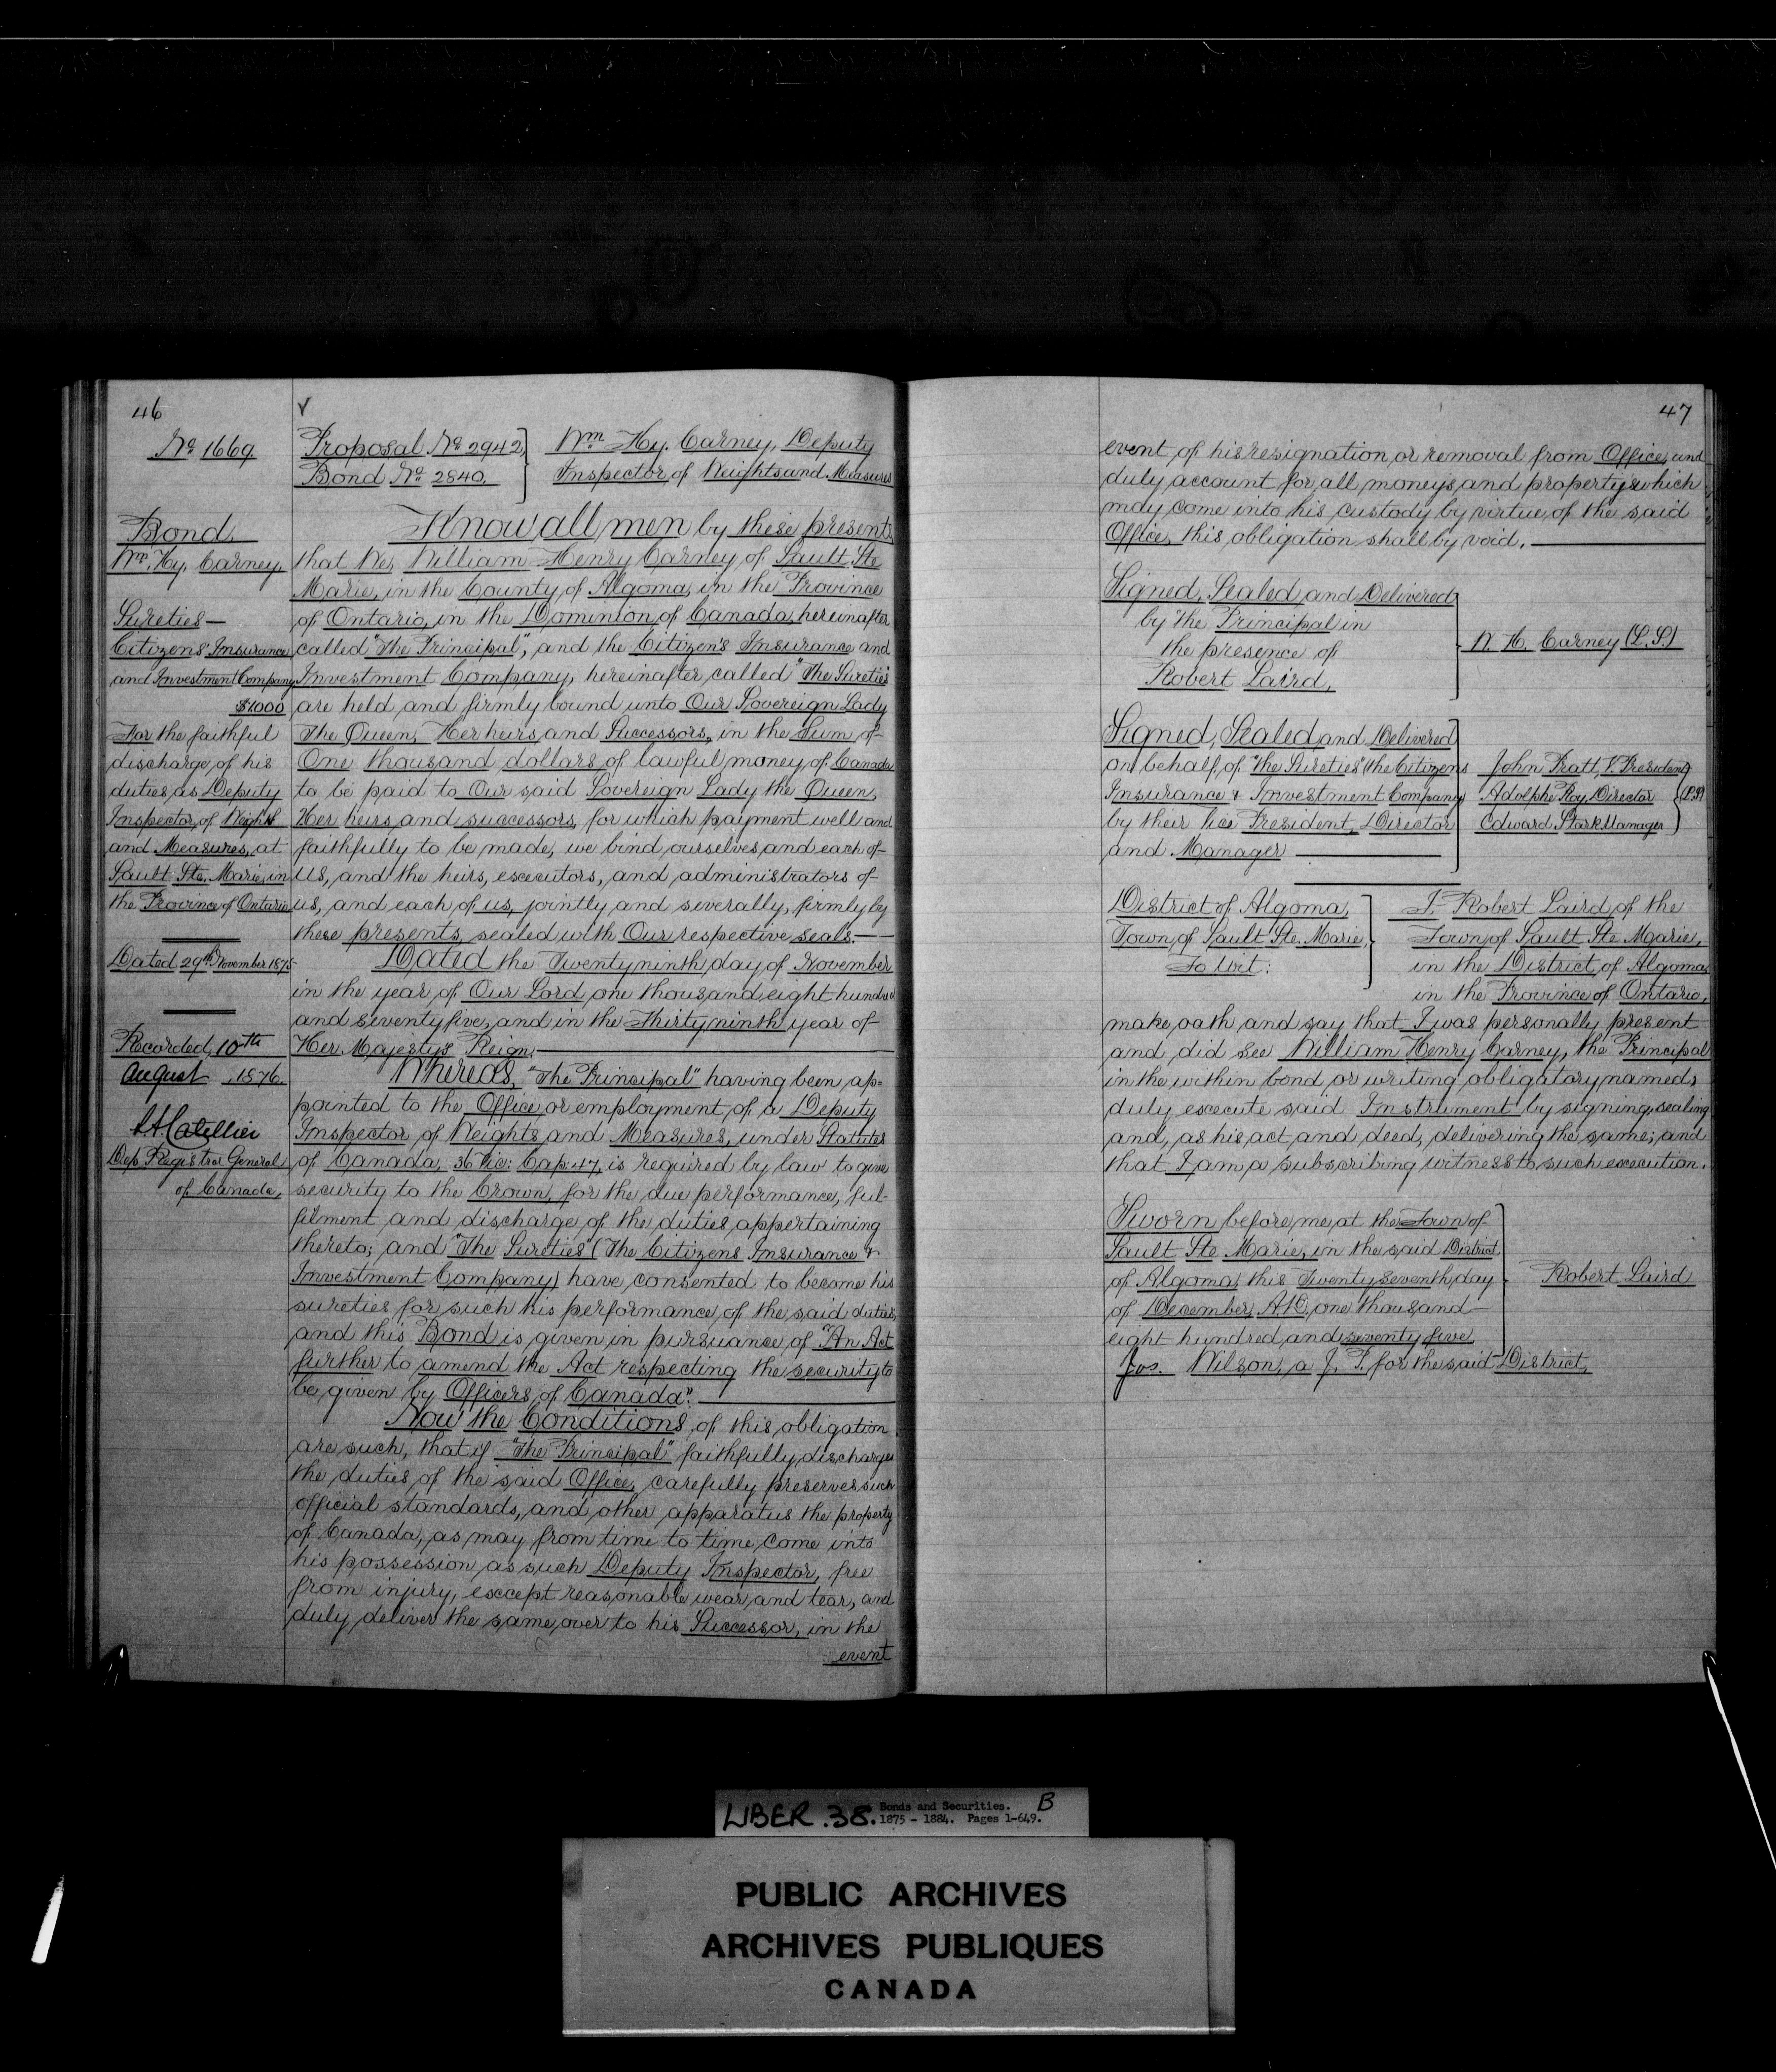 46
No 1669.
Bond
Wm. Hy. Carney.
Sureties —
Citizens' Insurance
and Investment Company
$1000
For the faithful
discharge of his
duties as Deputy
Inspector of Weights
and Measures, at
Sault Ste. Marie, in
the Province of Ontario
Dated 29th November 1875
Recorded, 10th
August 1876.
Dep. Registrar General
of Canada.
Proposal No 2942,
Bond No 2840.
Wm Hy. Carney, Deputy
Inspector of Weights and Measures
Know all men by these presents,
that We, William Henry Carney of Sault Ste
Marie, in the County of Algoma, in the Province
of Ontario, in the Dominion of Canada, hereinafter
called "The Principal", and the Citizen's Insurance and
Investment Company, hereinafter called "The Sureties"
are held and firmly bound unto Our Sovereign Lady
The Queen, Her heirs and Successors, in the Sum of
One thousand dollars of lawful money of Canada
to be paid to Our said Sovereign Lady the Queen,
Her heirs and successors, for which payment well and
faithfully to be made, we bind ourselves and each of
us, and the heirs, executors, and administrators of
us, and each of us, jointly and severally, firmly by
these presents, sealed with Our respective seals. —
Dated the Twenty ninth day of November
in the year of Our Lord one thousand eight hundred
and seventy five, and in the Thirty ninth year of
Her Majestys Reign. —
Whereas, "The Principal" having been ap=
pointed to the Office or employment of a Deputy
Inspector of Weights and Measures, under Statutes
of Canada, 36 Vic: Cap: 47, is required by law to give
security to the Crown, for the due performance, ful-
filment and discharge of the duties appertaining
thereto; and "The Sureties" (The Citizens Insurance &
Investment Company) have consented to become his
sureties for such his performance of the said duties,
and this Bond is given in pursuance of "An Act
further to amend the Act respecting the security to
be given by Officers of Canada". —
Now the Conditions of this obligation
are such, that if "The Principal" faithfully discharges
the duties of the said Office, carefully preserves such
official standards, and other apparatus the property
of Canada, as may from time to time come into
his possession as such Deputy Inspector, free
from injury, except reasonable wear and tear, and
duly deliver the same over to his Successor, in the
event
47
event of his resignation or removal from Office, and
duly account for all moneys and property which
may come into his custody by virtue of the said
Office, this obligation shall by void. —
Signed, Sealed and Delivered
by the Principal in
the presence of
Robert Laird.
W. H. Carney (L.S.)
Signed, Sealed and Delivered
on behalf of "the Sureties" (the Citizens
Insurance & Investment Company)
by their Vice President, Director
and Manager —
John Pratt, V. President
Adolphe Roy, Director
Edward Stark Manager
(L.S.)
District of Algoma,
Town of Sault Ste. Marie,
To Wit:
I, Robert Laird of the
Town of Sault Ste Marie,
in the District of Algoma
in the Province of Ontario,
make oath and say that I was personally present
and did see William Henry Carney, the Principal
in the within bond or writing obligatory named,
duly execute said Instrument by signing, sealing
and, as his act and deed, delivering the same; and
that I am a subscribing witness to such execution.
Sworn before me, at the Town of
Sault Ste Marie, in the said District
of Algoma, this Twenty seventh day
of December, A.D. one thousand
eight hundred and seventy five
Jos. Wilson, a J. P. for the said District,
Robert Laird
LIBER. 38. Bonds and Securities. B
1875 - 1884. Pages 1-649.
PUBLIC ARCHIVES
ARCHIVES PUBLIQUES
CANADA